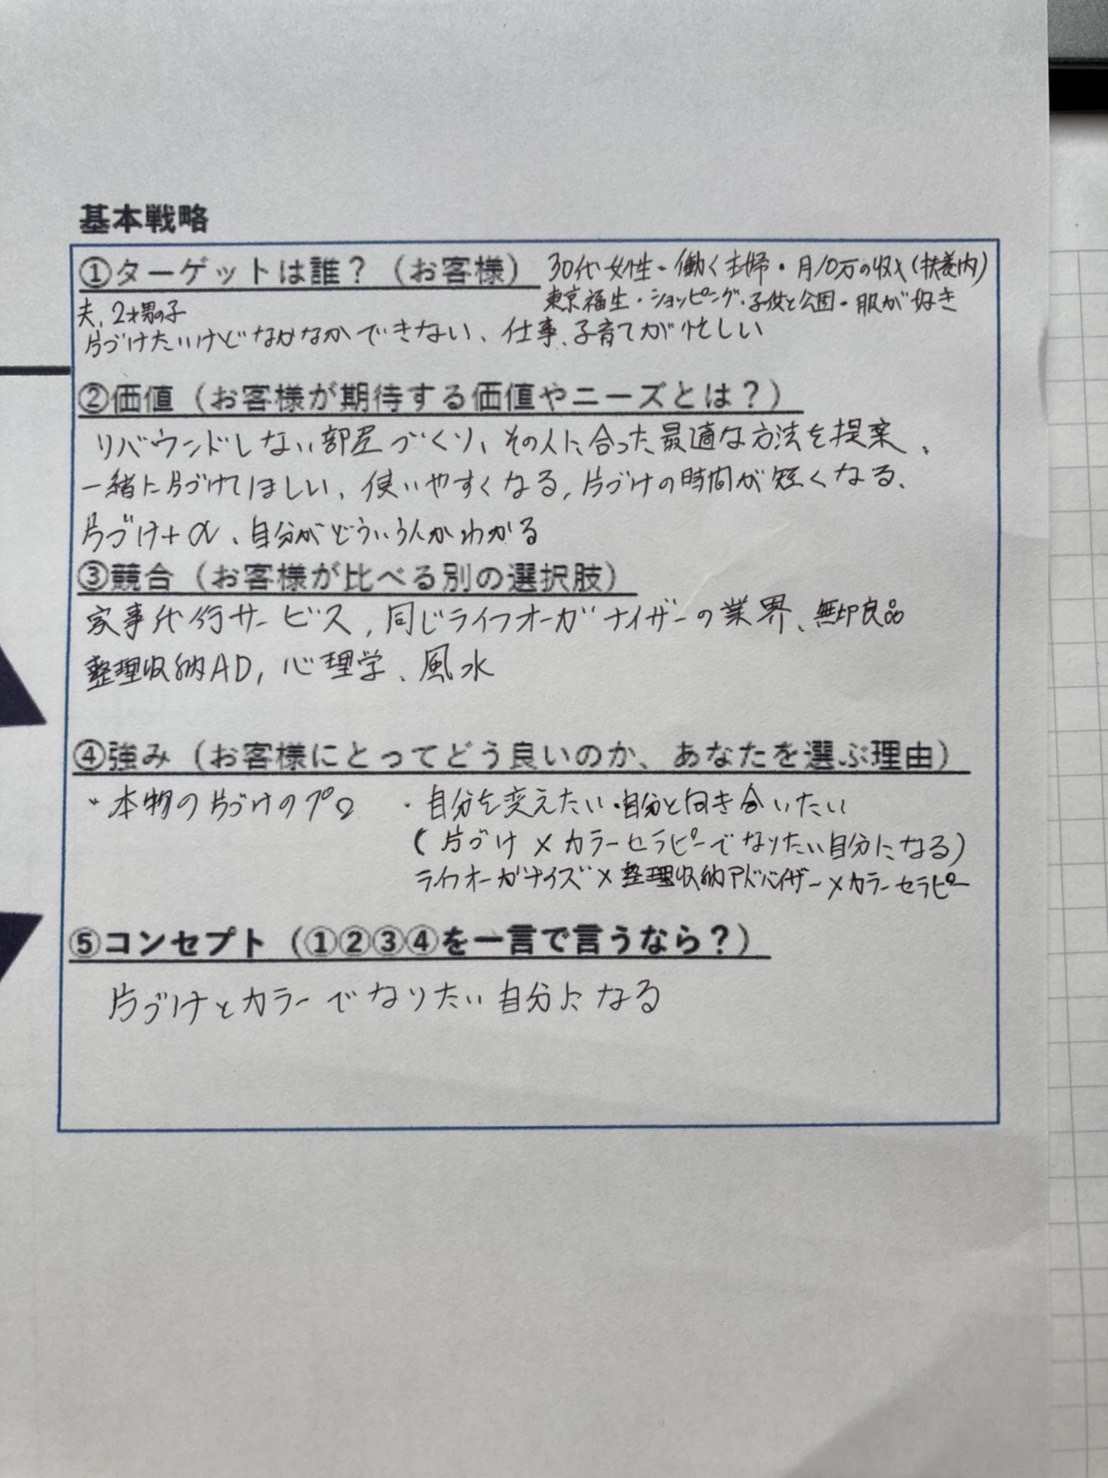 基本戦略
①ターゲットは誰？（お客様） 30代女性・働く主婦・月10万の収入(扶養内)
東京福生・ショッピング・子供と公園・服が好き
夫、2才男の子
片づけたいけどなかなかできない、仕事、子育てが忙しい
②価値（お客様が期待する価値やニーズとは？）
リバウンドしない部屋づくり、その人に合った最適な方法を提案、
一緒に片づけてほしい、使いやすくなる、片づけの時間が短くなる、
片づけ+α、自分がどういう人かわかる
③競合（お客様が比べる別の選択肢）
家事代行サービス、同じライフオーガナイザーの業界、無印良品
整理収納AD、心理学、風水
④強み（お客様にとってどう良いのか、あなたを選ぶ理由）
・本物の片づけのプロ ・自分を変えたい・自分と向き合いたい
(片づけ×カラーセラピーでなりたい自分になる)
ライフオーガナイズ×整理収納アドバイザー×カラーセラピー
⑤コンセプト（①②③④を一言で言うなら？）
片づけとカラーでなりたい自分になる